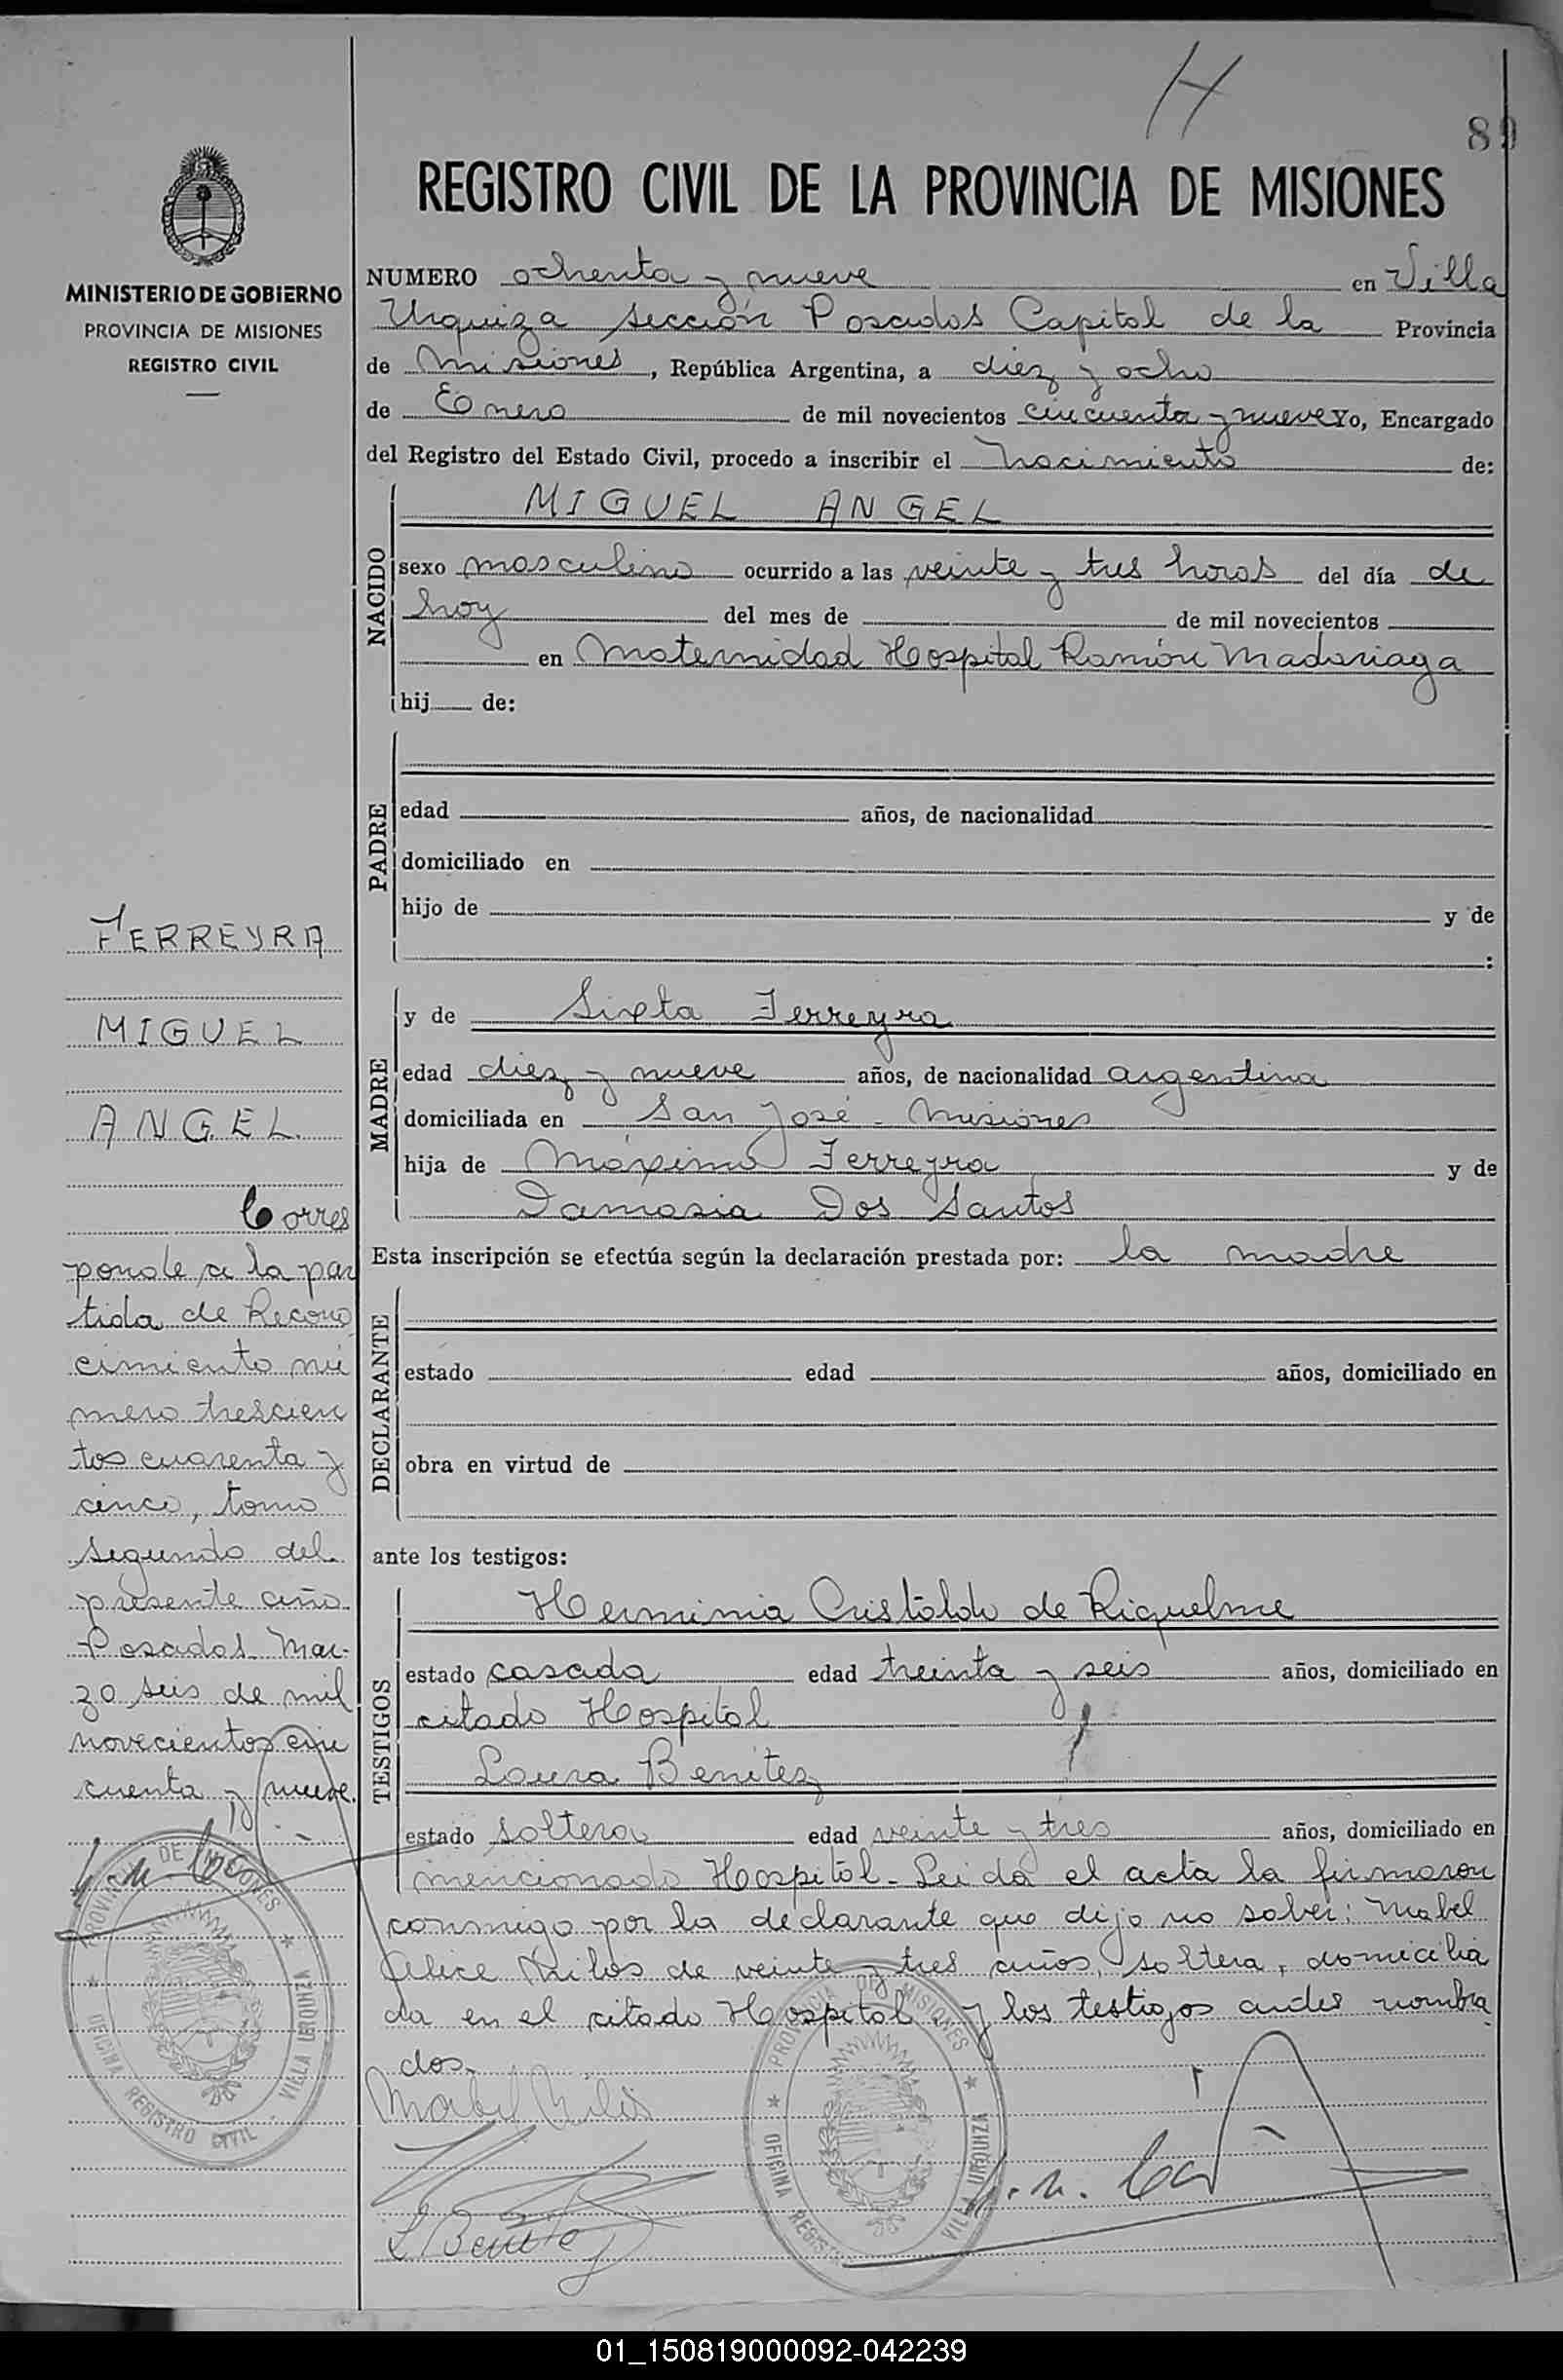 H
89
REGISTRO CIVIL DE LA PROVINCIA DE MISIONES
MINISTERIO DE GOBIERNO
PROVINCIA DE MISIONES
REGISTRO CIVIL
NUMERO ochenta y nueve en Villa
Urquiza sección Posadas Capital de la Provincia
de Misiones, República Argentina, a diez y ocho
de Enero de mil novecientos cincuenta y nueve Yo, Encargado
del Registro del Estado Civil, procedo a inscribir el nacimiento de:
NACIDO
MIGUEL ANGEL
sexo masculino ocurrido a las veinte y tres horas del día de
hoy del mes de de mil novecientos
en Maternidad Hospital Ramón Madariaga
hij de:
PADRE
edad años, de nacionalidad
domiciliado en
hijo de y de
:
MADRE
y de Sixta Ferreyra
edad diez y nueve años, de nacionalidad argentina
domiciliada en San José - Misiones
hija de Máximo Ferreyra y de
Damasia Dos Santos
Esta inscripción se efectúa según la declaración prestada por: la madre
DECLARANTE
estado edad años, domiciliado en
obra en virtud de
ante los testigos:
TESTIGOS
Herminia Cristaldo de Riquelme
estado casada edad treinta y seis años, domiciliado en
citado Hospital
Laura Benitez
estado soltera edad veinte y tres años, domiciliado en
mencionado Hospital - Leida el acta la firmaron
conmigo por la declarante que dijo no saber: Mabel
de veinte y tres años, soltera, domicilia
da en el citado Hospital y los testigos antes nombra
dos.
Mabel
L Benitez
FERREYRA
MIGUEL
ANGEL
Corres
ponde a la par
tida de Recono
cimiento nú
mero trescien
tos cuarenta y
cinco, tomo
segundo del
presente año.
Posadas Mar-
zo seis de mil
novecientos cin
cuenta y nueve.
PROVINCIA DE MISIONES
VILLA URQUIZA
OFICINA REGISTRO CIVIL
PROVINCIA DE MISIONES
VILLA URQUIZA
OFICINA REGISTRO
01_150819000092-042239